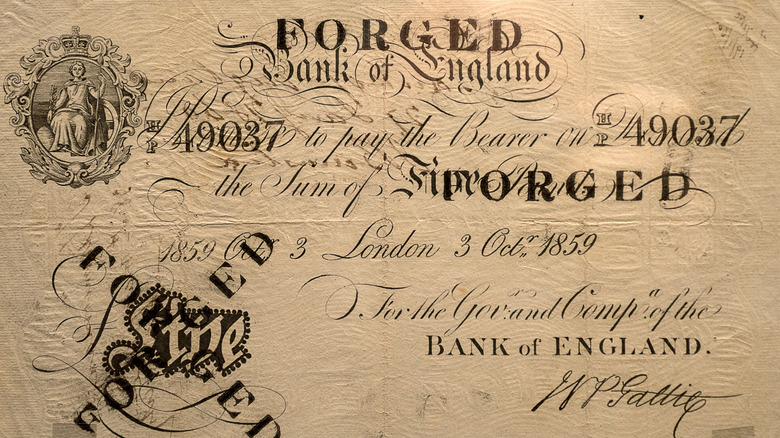 FORGED
Bank of England
H/P 49037 to pay the Bearer on H/P 49037
the Sum of Five FORGED
1859 Octr 3 London 3 Octr 1859
FORGED
Five
FORGED
For the Govr. and Compa. of the
BANK of ENGLAND.